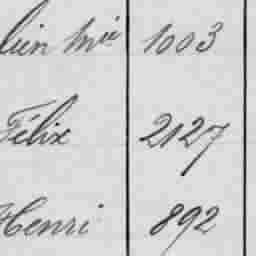 lien Mié 1003
Félix 2127
Henri 892